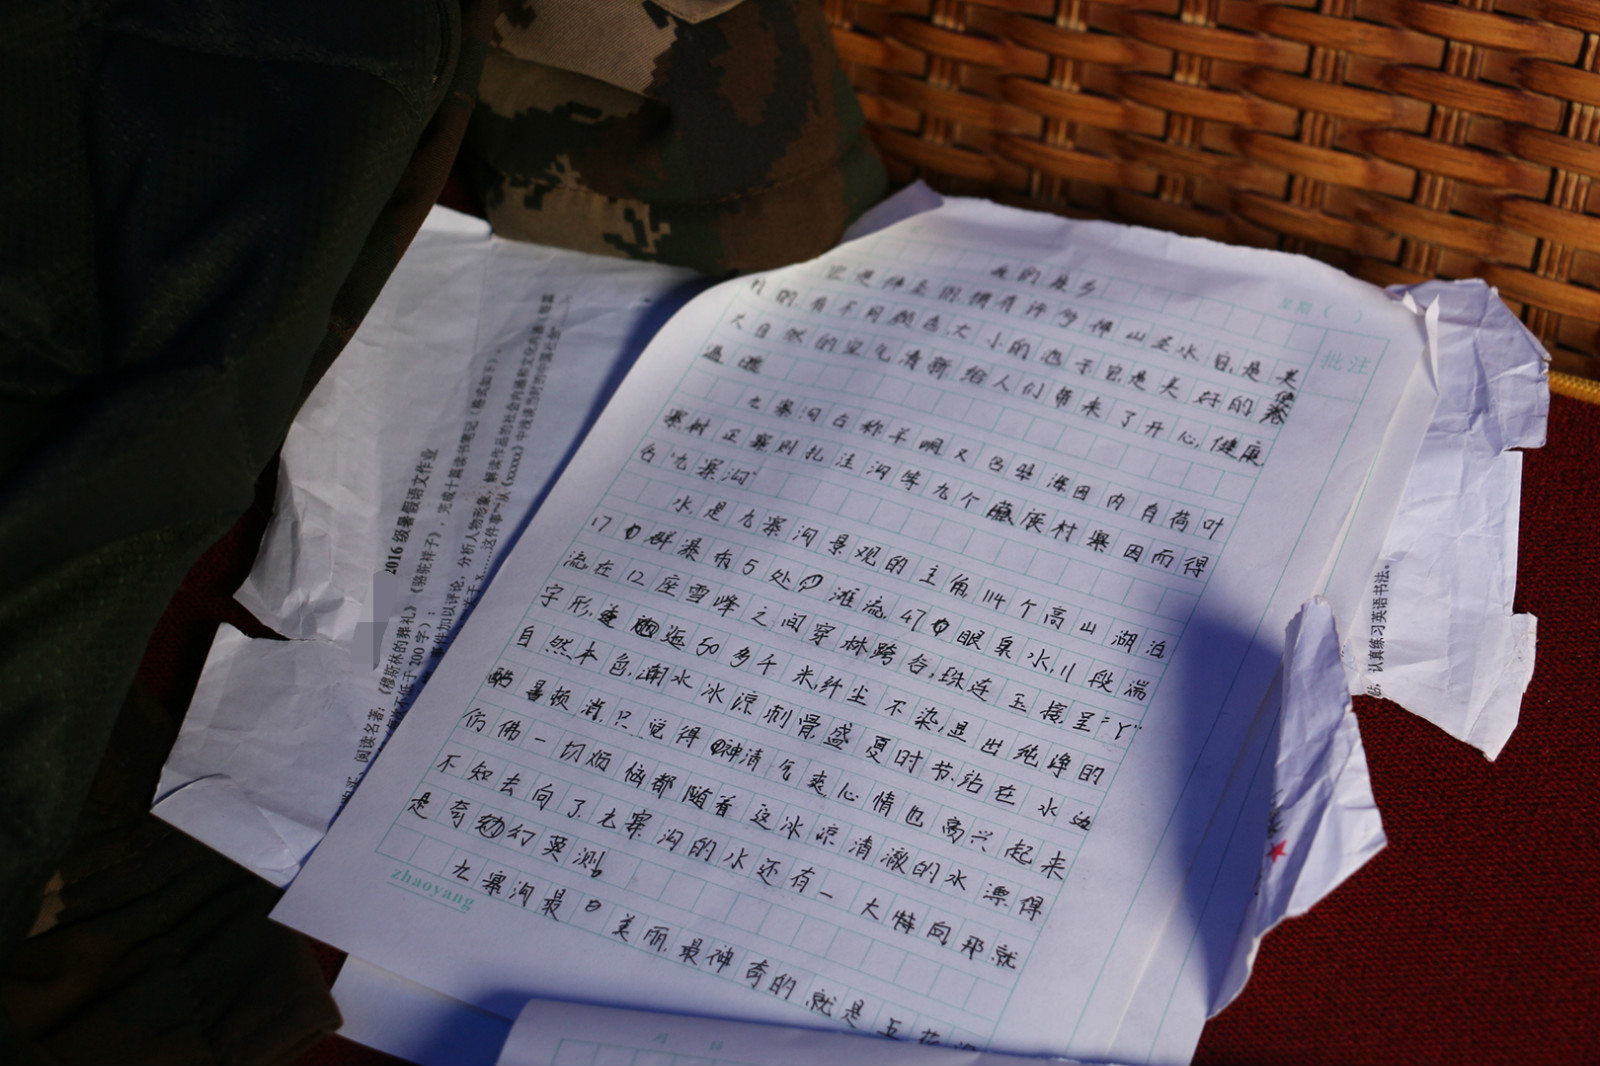 我的故乡
星期（ ）
批注
它是神圣的拥有许多神山圣水,它是美
的有不同颜色大小的池子它是大好的
大自然的空气清新给人们带来了开心,健康
温暖
九寨沟白称羊峒又 海因内有荷叶
寨树正寨则扎洼沟等九个藏族村寨因而得
名"九寨沟"
水是九寨沟景观的主角,114个高山湖泊
17 群瀑布5处 滩流,47 眼泉水,11段湍
流在12座雪峰之间穿林跨谷,珠连玉接,呈"丫"
字形, 迤50多千米,纤尘不染,显出纯净的
自然本色,湖水冰凉刺骨盛夏时节,站在水边
暑顿消只觉得 神清气爽心情也高兴起来
仿佛一切烦恼都随着这冰凉清澈的水漂得
不知去向了,九寨沟的水还有一大特向那就
是奇幻莫测
九寨沟最 美丽,最神奇的,就是五花
zhaoyang
2016级暑假语文作业
阅读名著:《穆斯林的葬礼》《骆驼祥子》,完成十篇读书笔记(格式如下)。
不低于200字):
事件加以评论,分析人物形象,解读作品的社会内涵和文化内涵
认真练习英语书法。
月 日